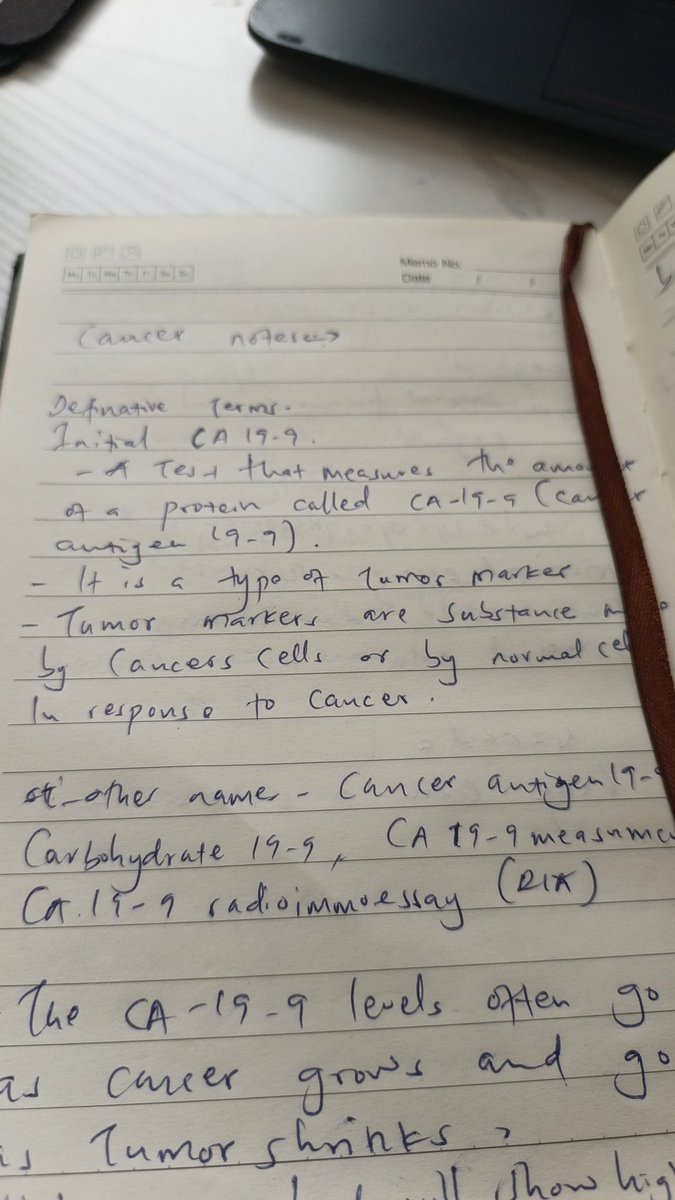 Mo Tu We Th Fr Sa Su
Memo No.
Date / /
Cancer notes
Definative Terms.
Initial CA 19-9.
- A Test that measures the
of a protein called CA-19-9 (
antigen 19-9).
- It is a type of Tumor marker
- Tumor markers are substance
by Cancers Cells or by normal
In response to Cancer.
other name - Cancer antigen 19-
Carbohydrate 19-9, CA 19-9
CA.19-9 radioimmoessay (RIA)
The CA-19-9 levels often go
as cancer grows and go
as Tumor shrinks,
will show